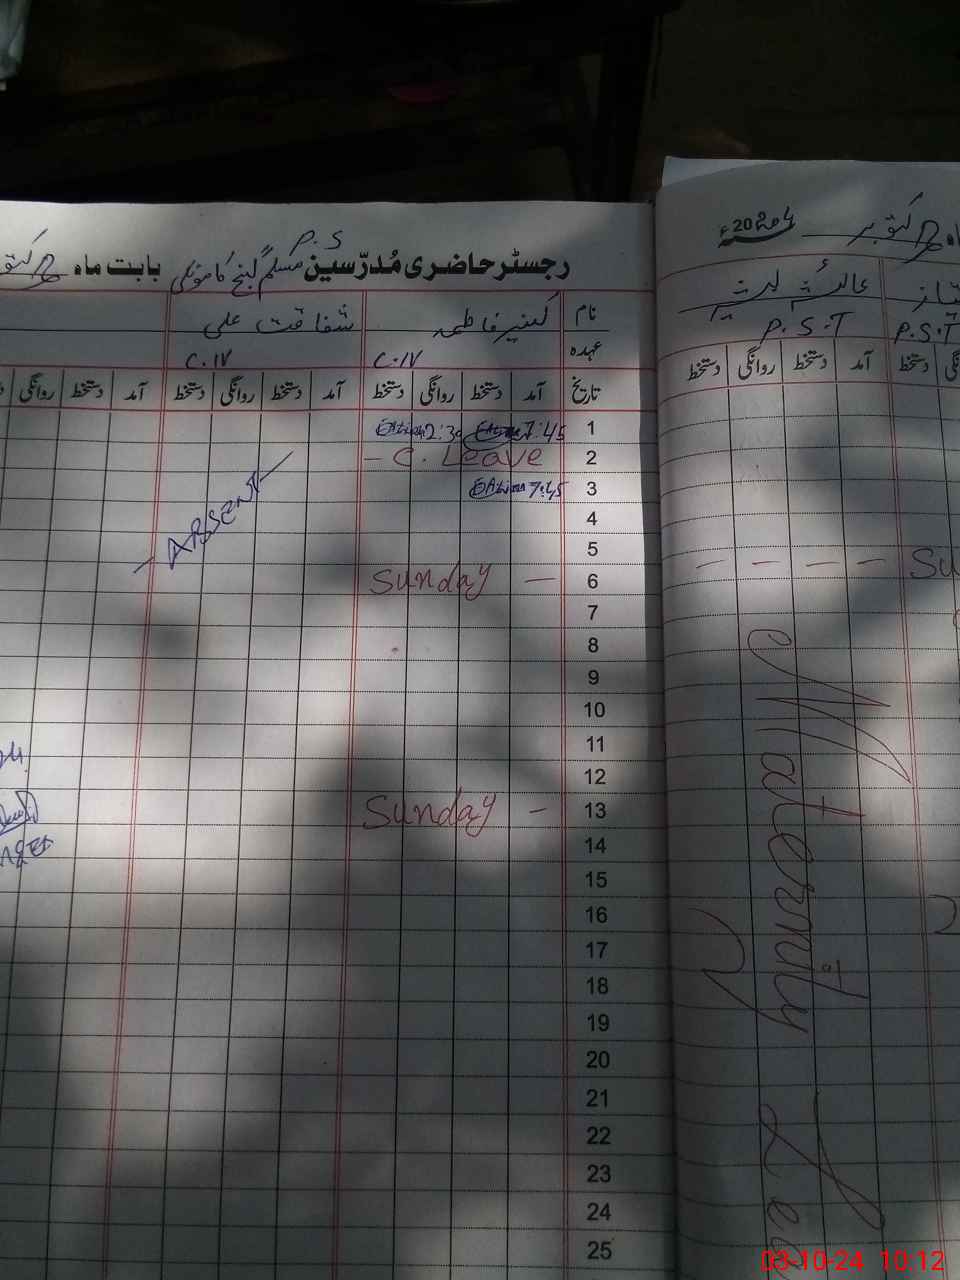 P.S
رجسٹر حاضری مُدرّسین مسلم گنج کامونکی بابت ماہ
نام کنیز فاطمہ شفاقت علی
عہدہ C.IV C.IV
تاریخ آمد دستخط روانگی دستخط آمد دستخط روانگی دستخط آمد دستخط روانگی
1 7:45 2:30
2 C. Leave -
3 7:45
- ABSENT -
4
5
6 Sunday -
7
8
9
10
11
12
13 Sunday -
14
15
16
17
18
19
20
21
22
23
24
25
اکتوبر 2024ء
P.S.T P.S.T
آمد دستخط روانگی دستخط
دستخط
- - - - Su
Maternity Lea
03-10-24 10:12